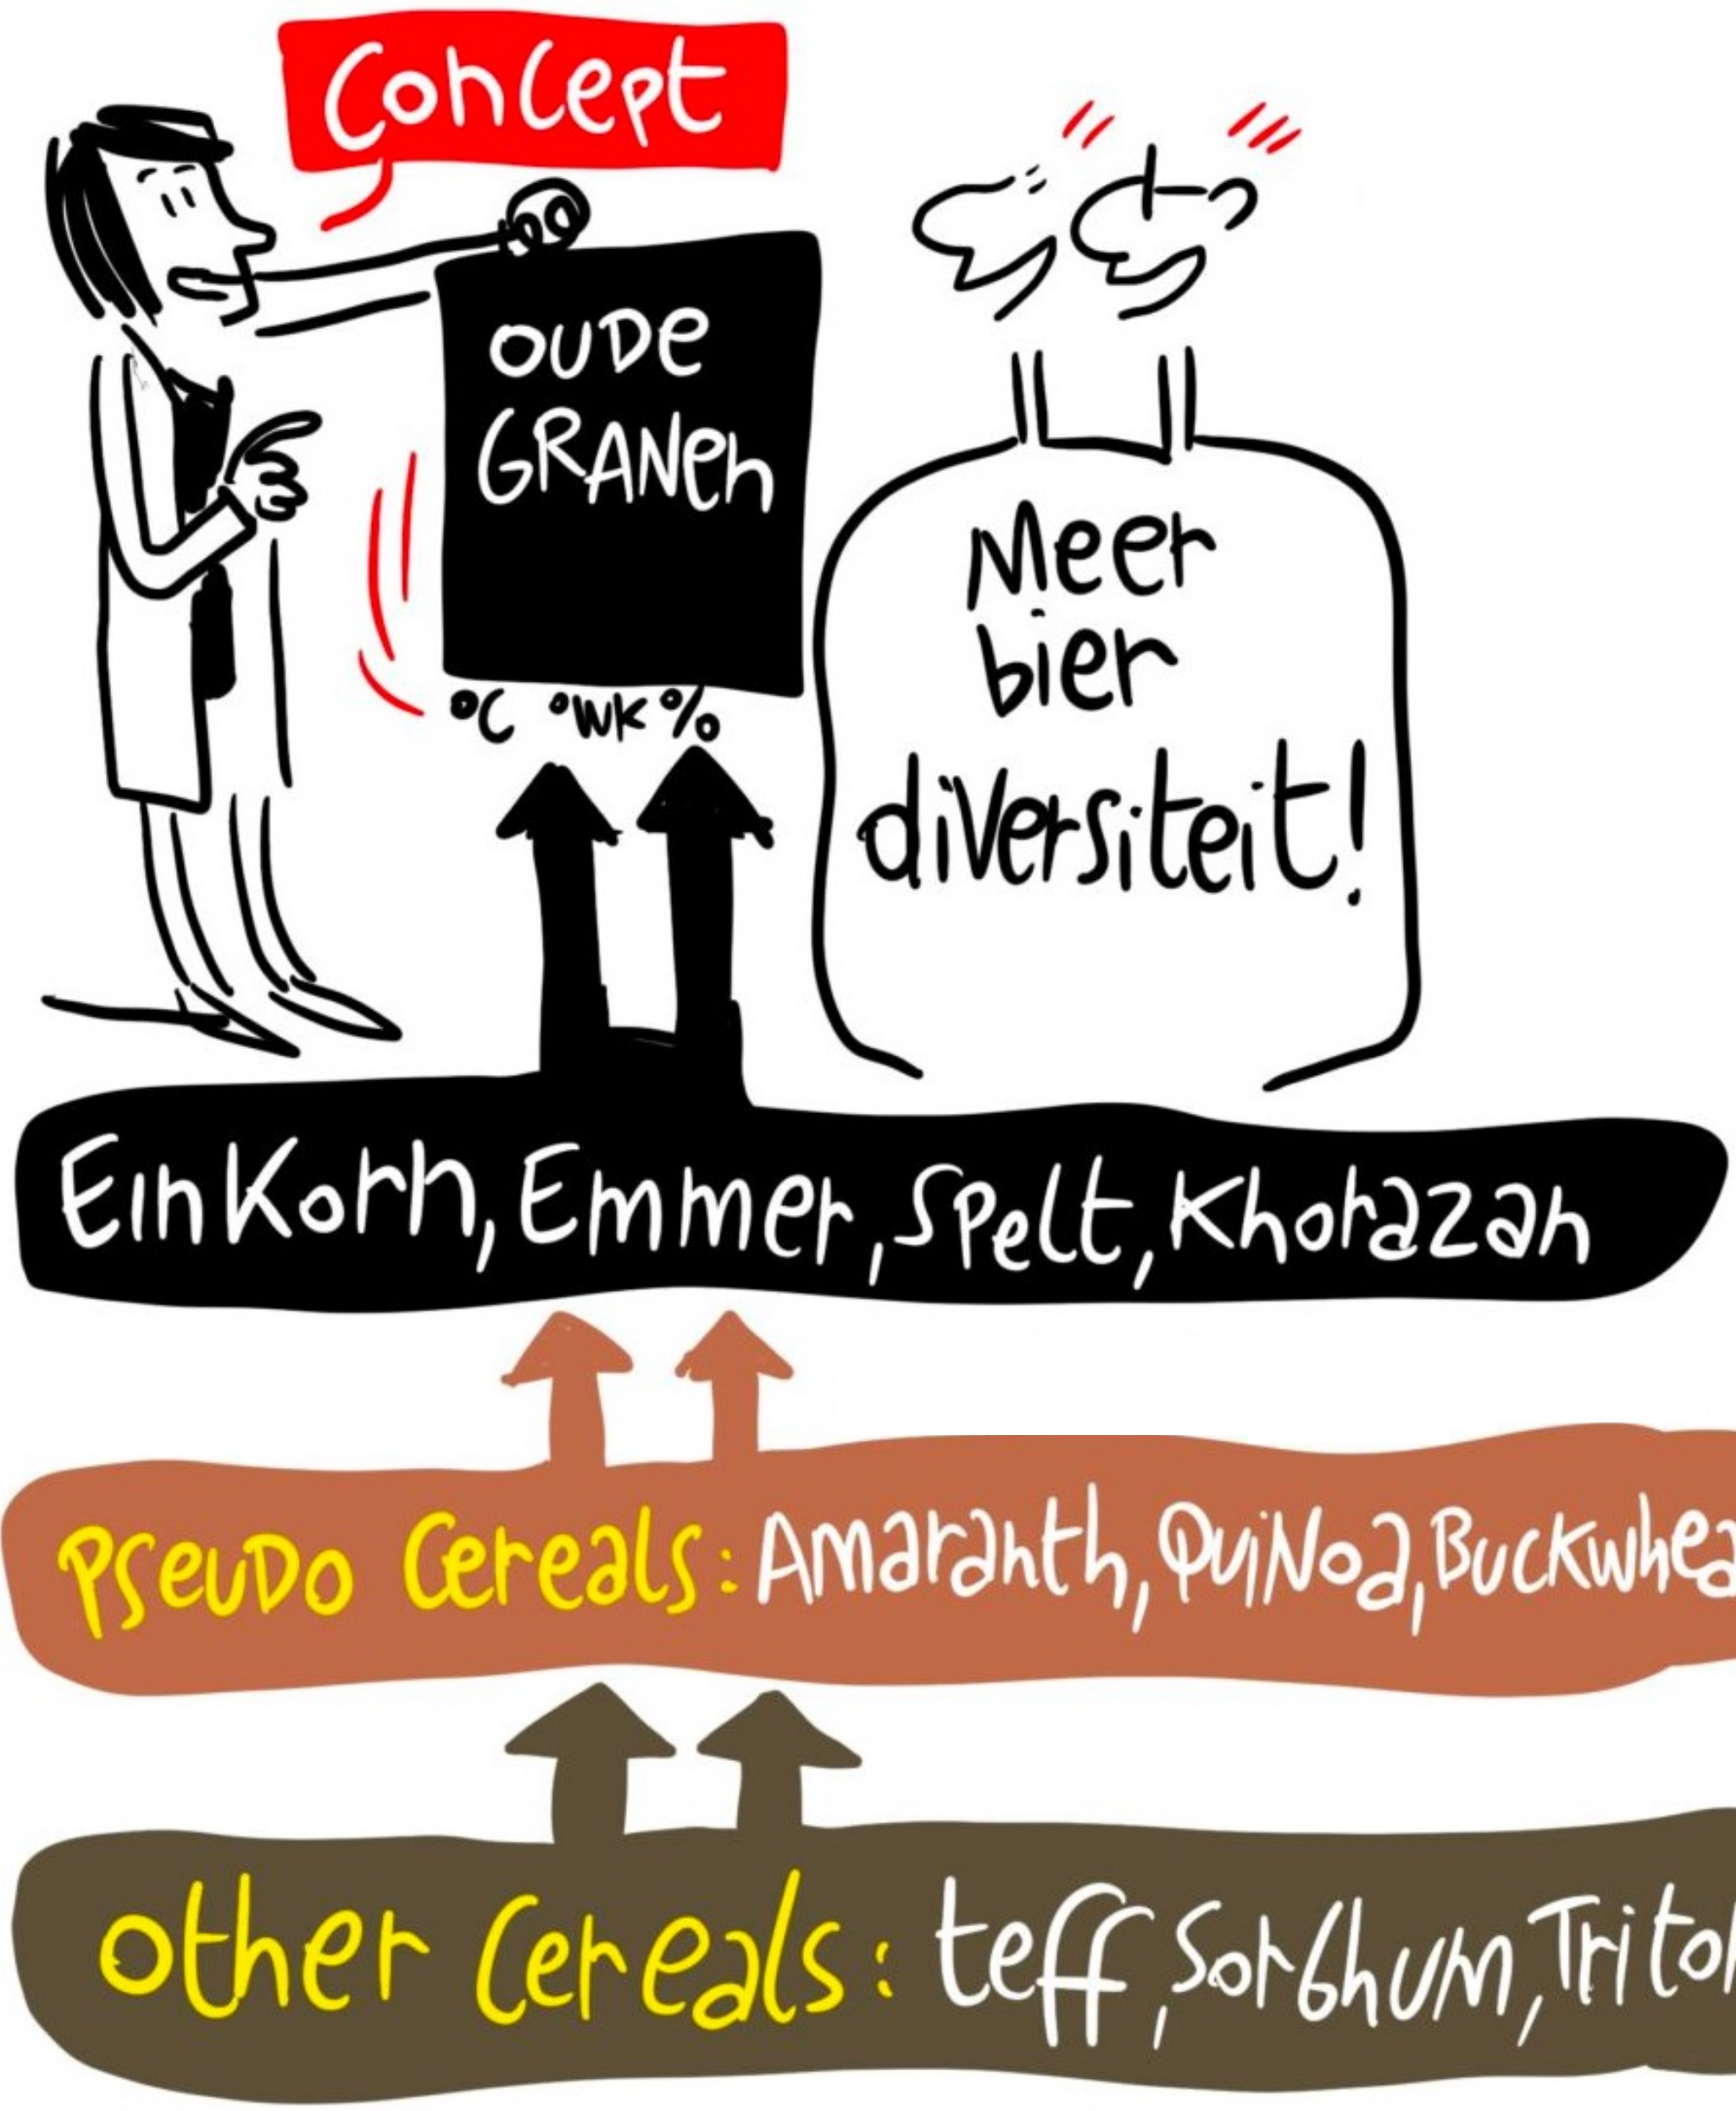 Concept
OUDE
GRANEN
°C °WK %
Meer
bier
diversiteit!
EinKorn, Emmer, Spelt, Khorazan
Pseudo Cereals: Amaranth, QuiNoa, Buckwhea
other Cereals: teff, SorGhum, Trito